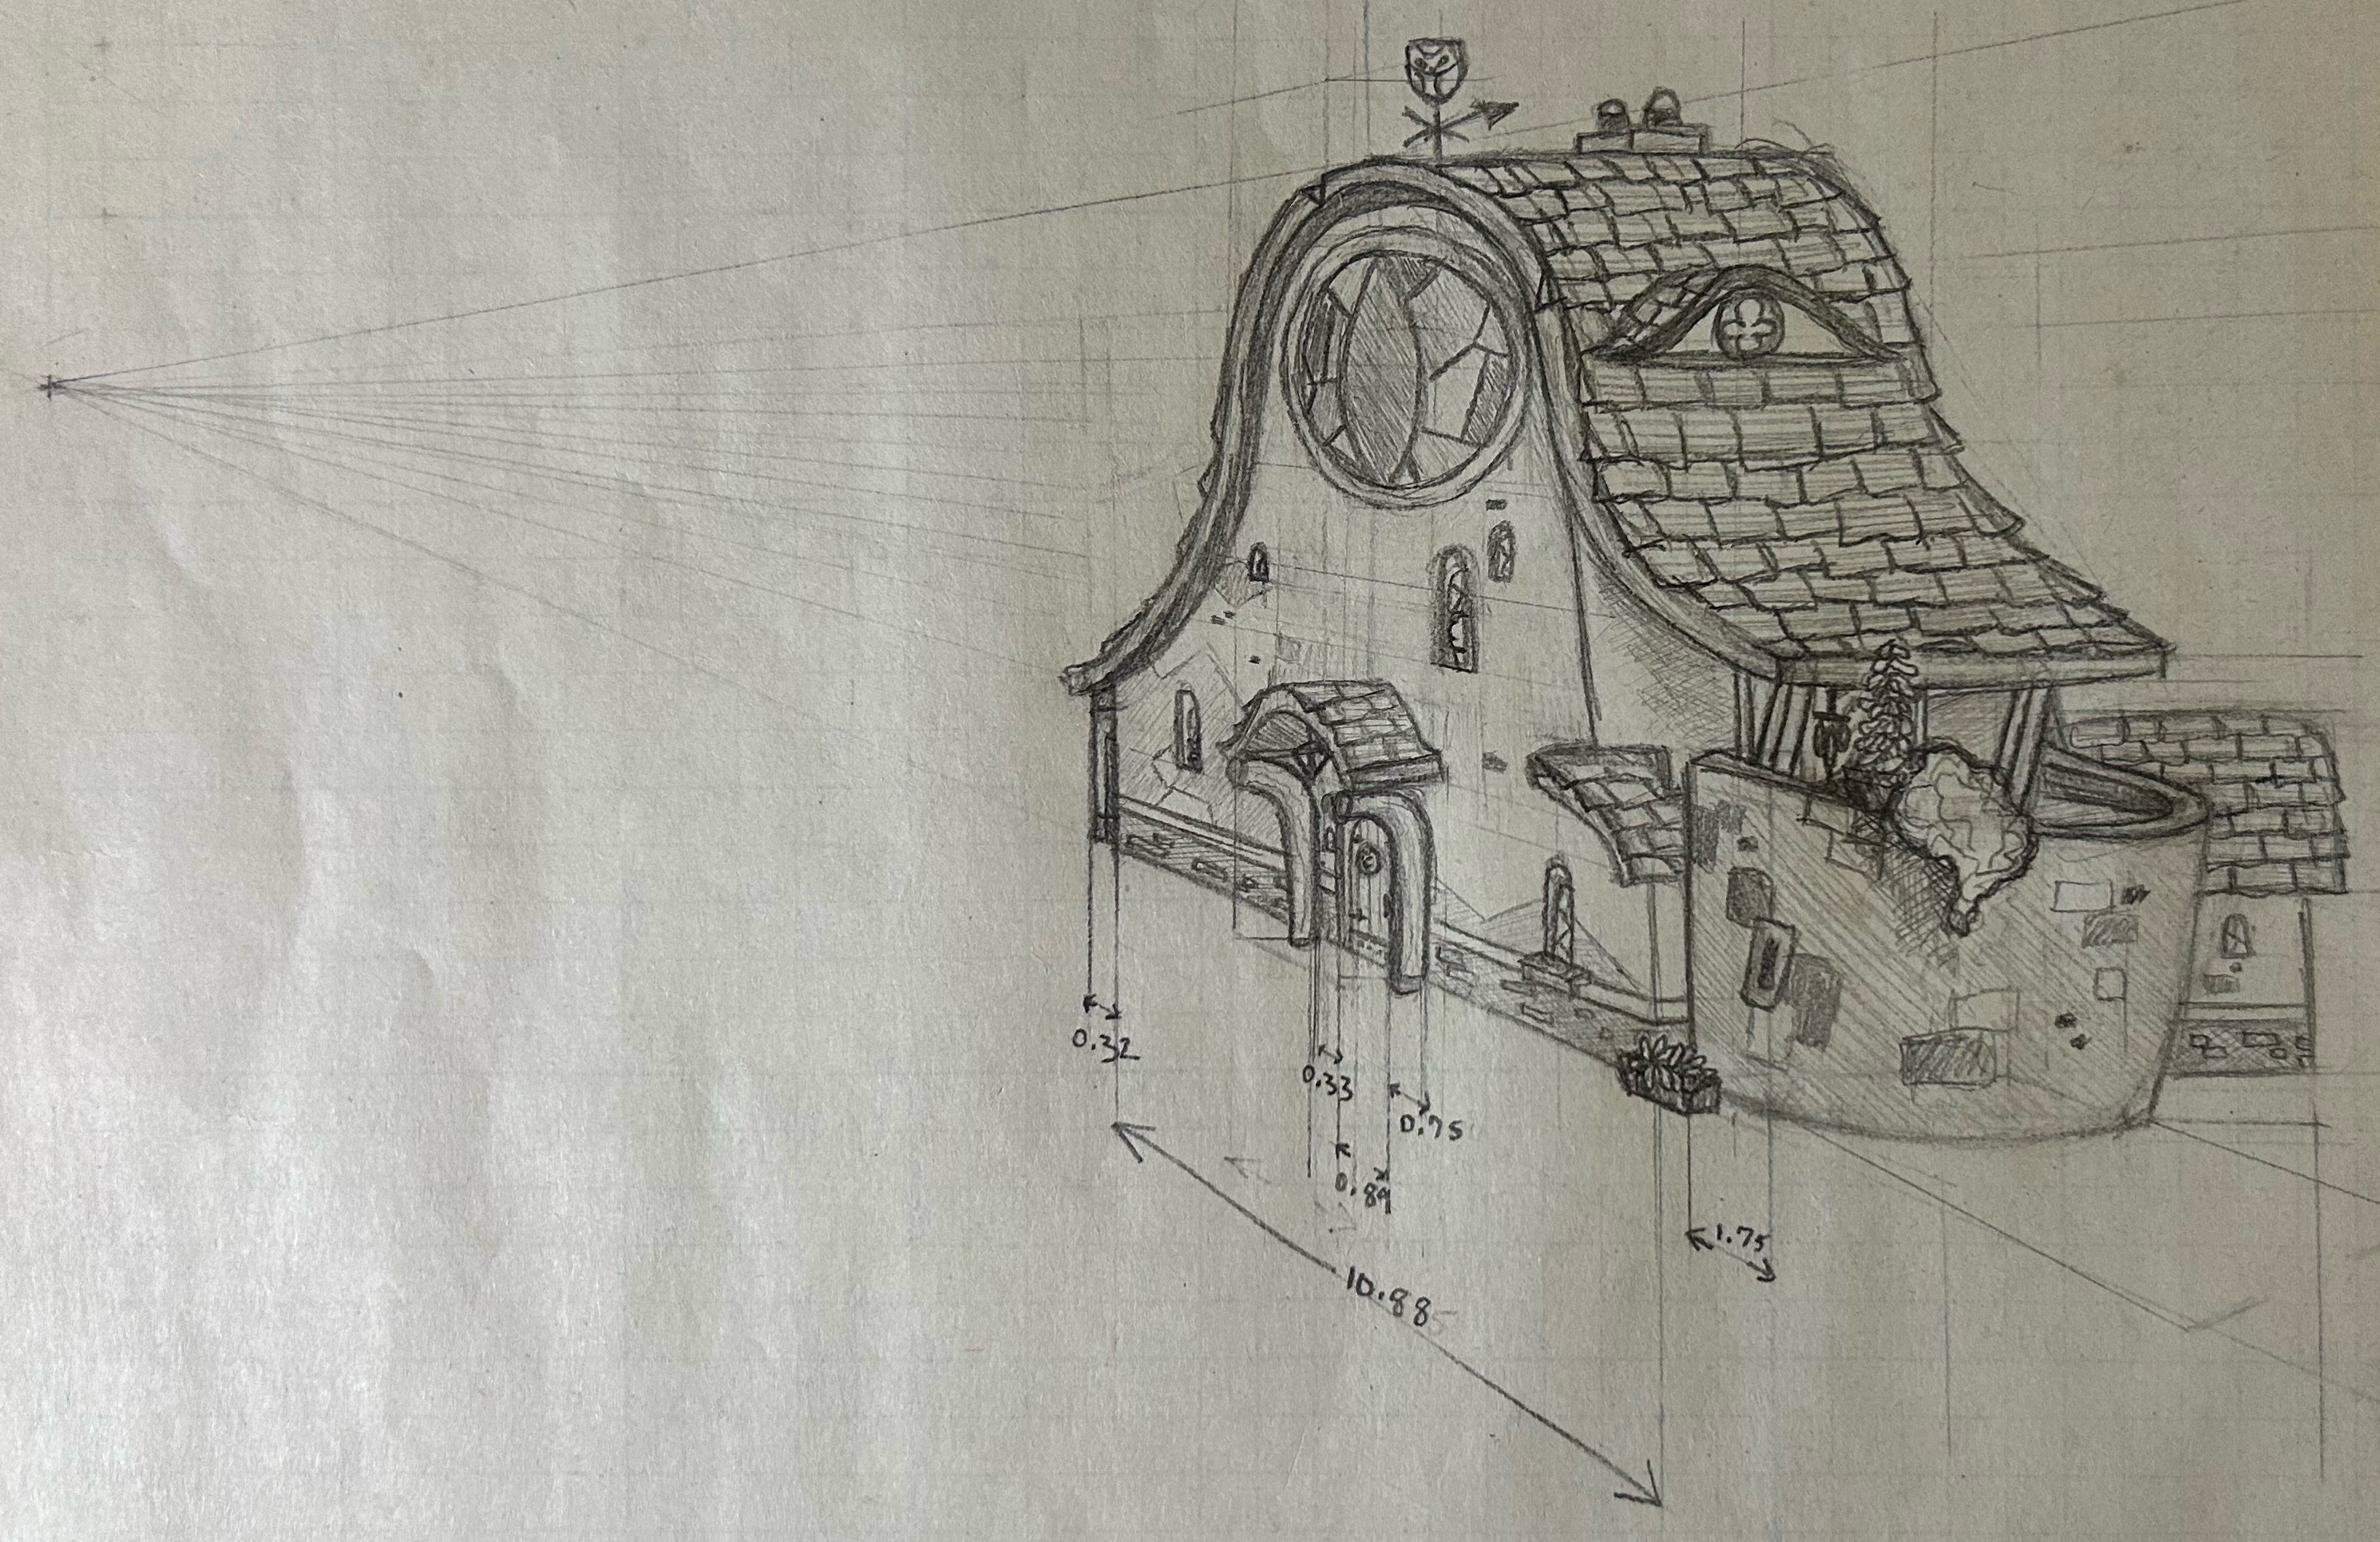 0.32
0.33
0.75
0.89
1.75
10.88